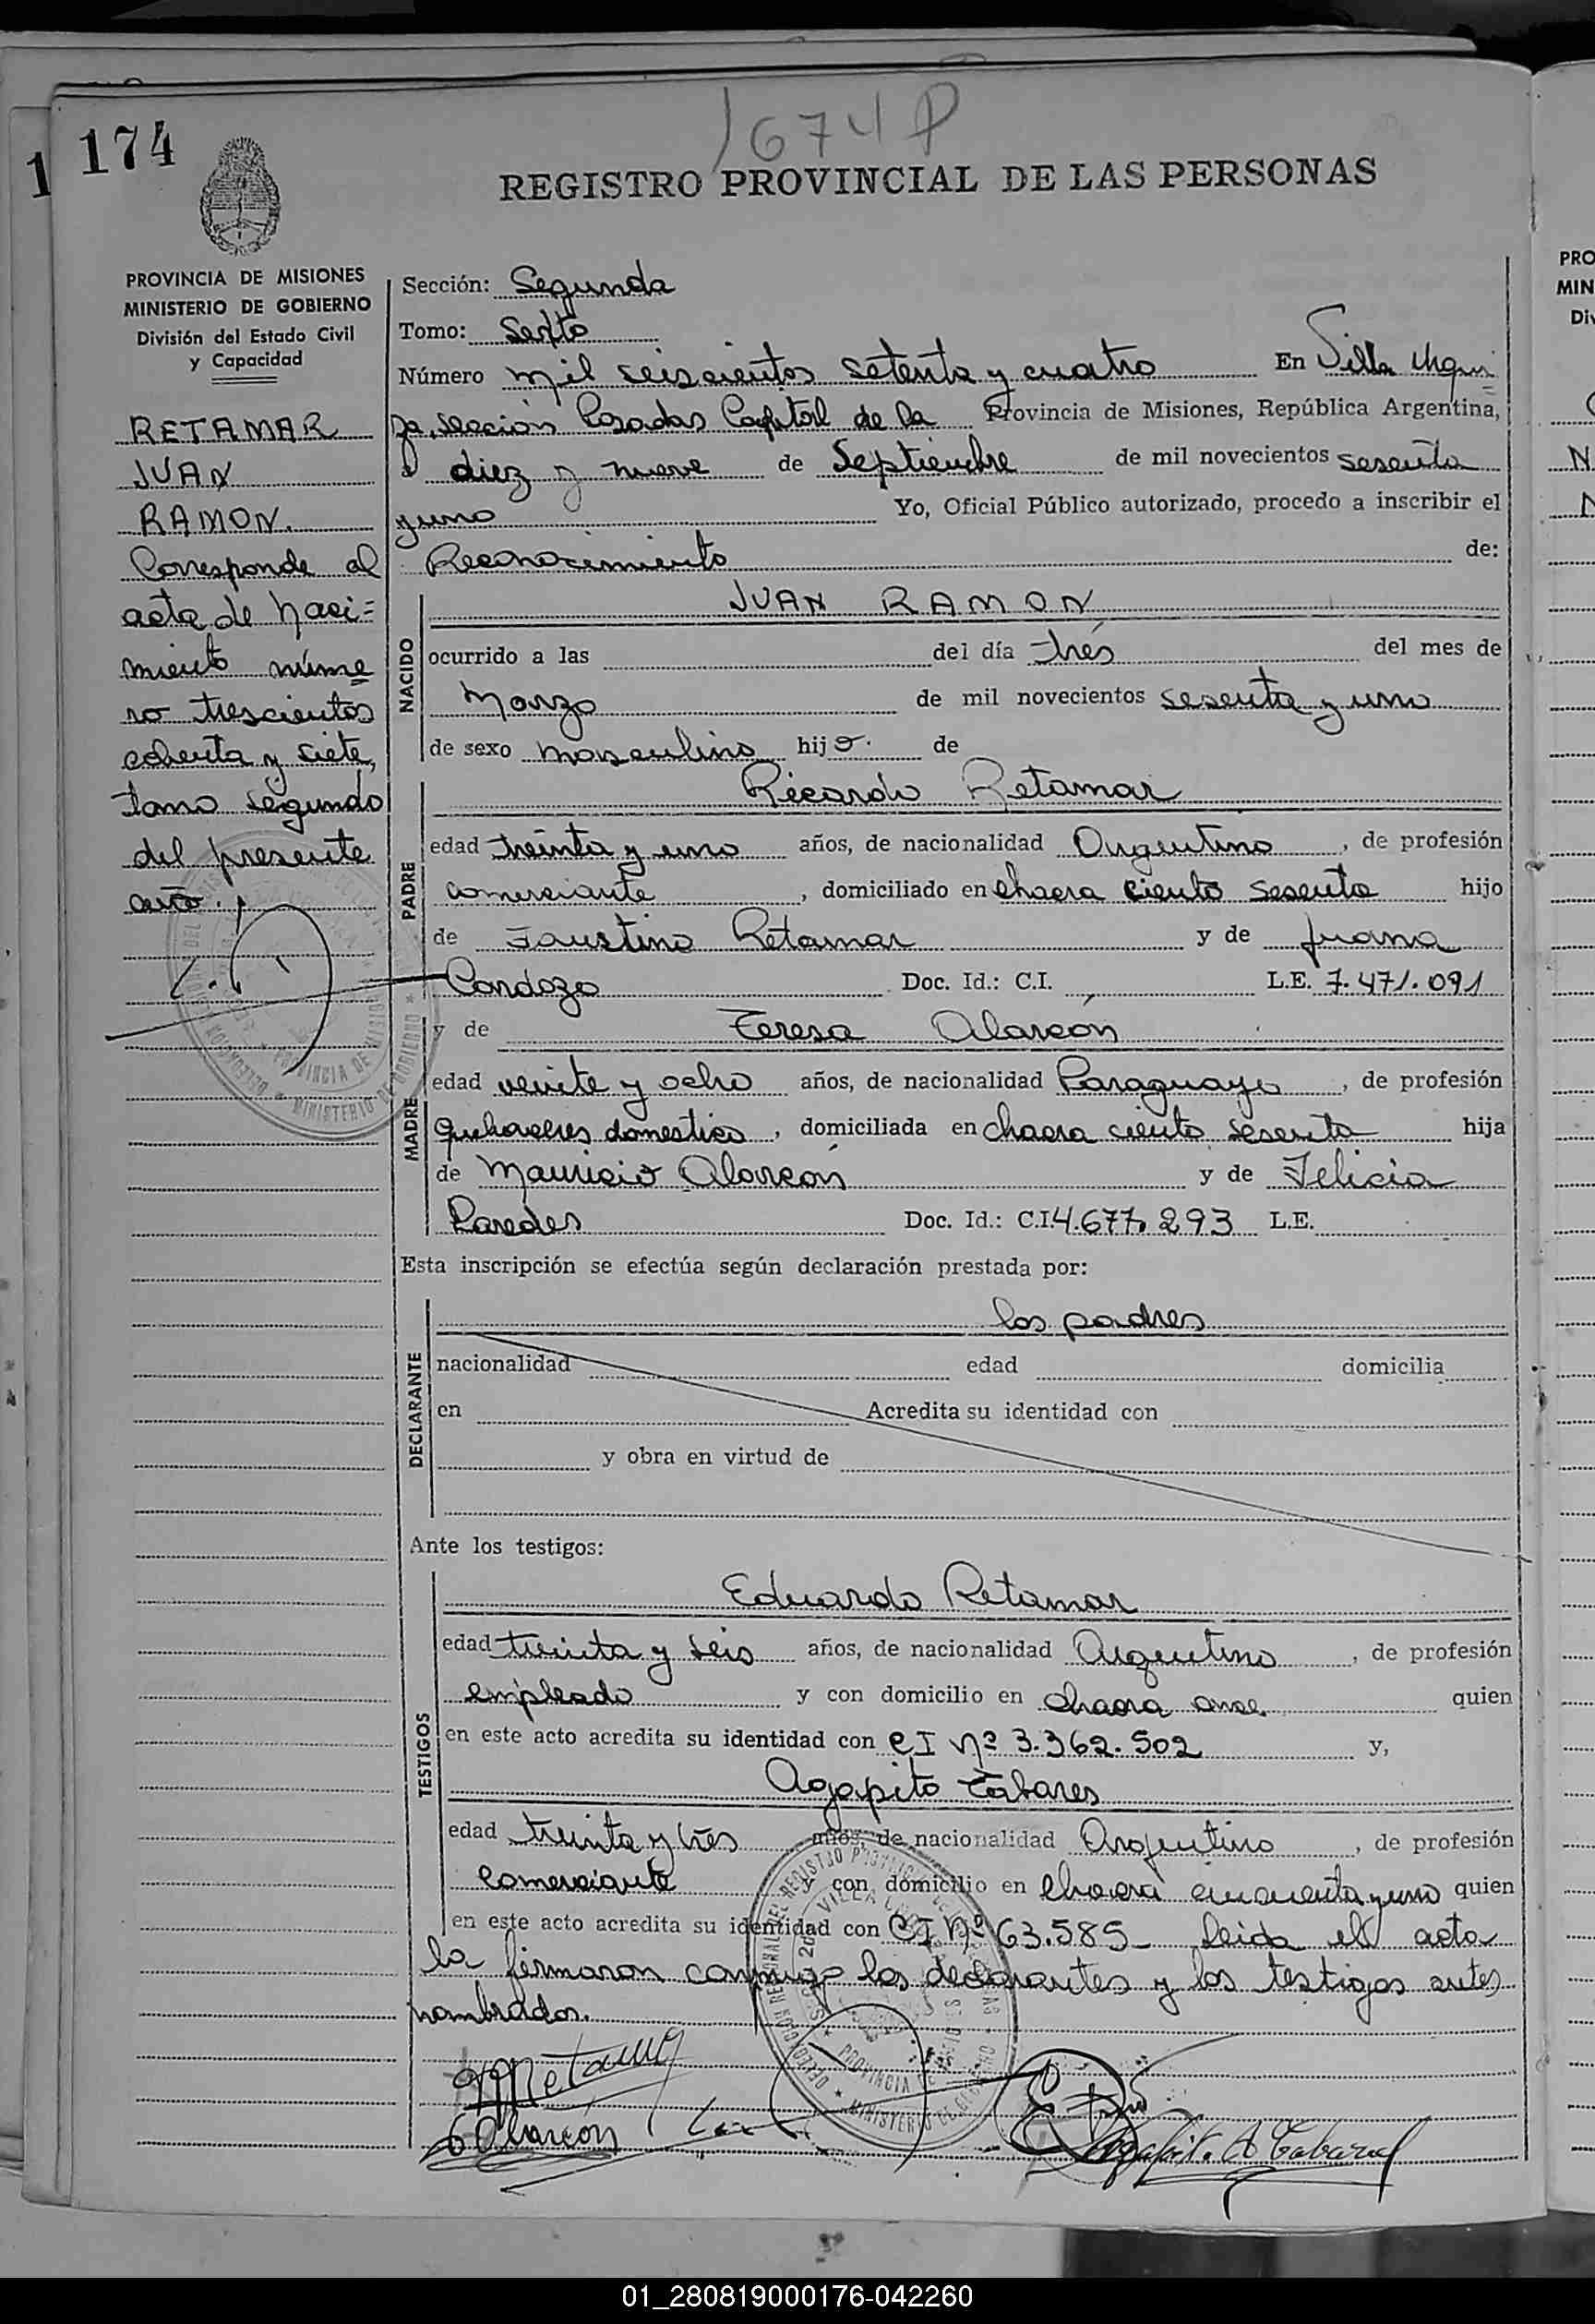 174
1
1674 P
REGISTRO PROVINCIAL DE LAS PERSONAS
PROVINCIA DE MISIONES
MINISTERIO DE GOBIERNO
División del Estado Civil
y Capacidad
RETAMAR
JUAN
RAMON.
Corresponde al
acta de naci=
miento núme
ro trescientos
ochenta y siete,
tomo segundo
del presente
año.
Sección: Segunda
Tomo: Sexto
Número mil seiscientos setenta y cuatro En Villa Urqui
za, sección Posadas Capital de la Provincia de Misiones, República Argentina,
a diez y nueve de Septiembre de mil novecientos sesenta
y uno Yo, Oficial Público autorizado, procedo a inscribir el
Reconocimiento de:
NACIDO
JUAN RAMON
ocurrido a las del día trés del mes de
Marzo de mil novecientos sesenta y uno
de sexo masculino hijo. de
PADRE
Ricardo Retamar
edad treinta y uno años, de nacionalidad Argentino, de profesión
comerciante, domiciliado en chacra ciento sesenta hijo
de Faustino Retamar y de Juana
Cardozo Doc. Id.: C.I. L.E. 7.471.091
MADRE
y de Teresa Alarcón
edad veinte y ocho años, de nacionalidad Paraguaya, de profesión
quehaceres domestico, domiciliada en chacra ciento sesenta hija
de Mauricio Alarcón y de Felicia
Paredes Doc. Id.: C.I. 4.677.293 L.E.
Esta inscripción se efectúa según declaración prestada por:
DECLARANTE
los padres
nacionalidad edad domicilia
en Acredita su identidad con
y obra en virtud de
Ante los testigos:
TESTIGOS
Eduardo Retamar
edad treinta y seis años, de nacionalidad Argentino, de profesión
empleado y con domicilio en chacra once. quien
en este acto acredita su identidad con CI Nº 3.362.502 y,
Agapito Tabares
edad treinta y trés años, de nacionalidad Argentino, de profesión
comerciante y con domicilio en chacra cincuenta y uno quien
en este acto acredita su identidad con CI Nº 63.585- Leida el acta
la firmaron conmigo los declarantes y los testigos antes
nombrados.
Retamar
Alarcón
Agapit. A Tabares
PRO
MIN
Div
01_280819000176-042260